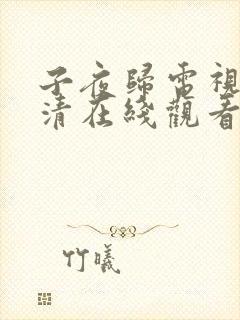 子夜歸電視
清在綫觀看
竹曦